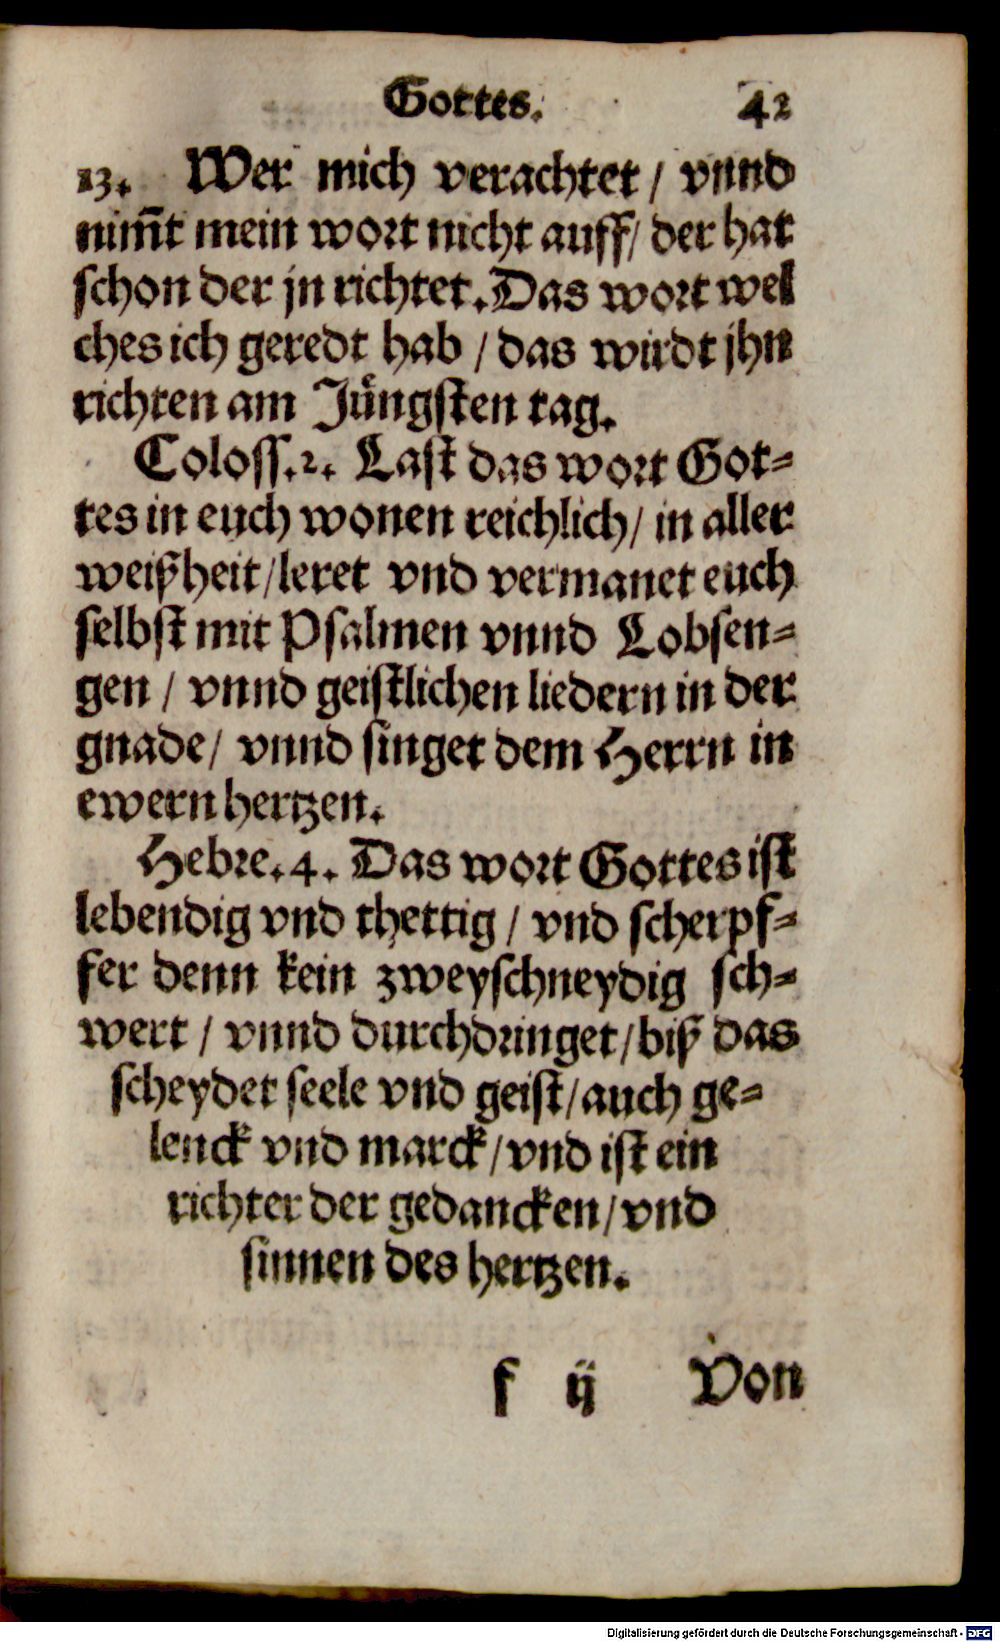 Gottes. 42
13. Wer mich verachtet / vnnd
nim̄t mein wort nicht auff / der hat
schon der jn richtet. Das wort wel
ches ich geredt hab / das wirdt jhn
richten am Jüngsten tag.
Coloss. 2. Last das wort Got⸗
tes in euch wonen reichlich / in aller
weißheit / leret vnd vermanet euch
selbst mit Psalmen vnnd Lobsen⸗
gen / vnnd geistlichen liedern in der
gnade / vnnd singet dem Herrn in
ewern hertzen.
Hebre. 4. Das wort Gottes ist
lebendig vnd thettig / vnd scherpf⸗
fer denn kein zweyschneydig sch⸗
wert / vnnd durchdringet / biß das
scheydet seele vnd geist / auch ge⸗
lenck vnd marck / vnd ist ein
richter der gedancken / vnd
sinnen des hertzen.
f ij Von
Digitalisierung gefördert durch die Deutsche Forschungsgemeinschaft - DFG